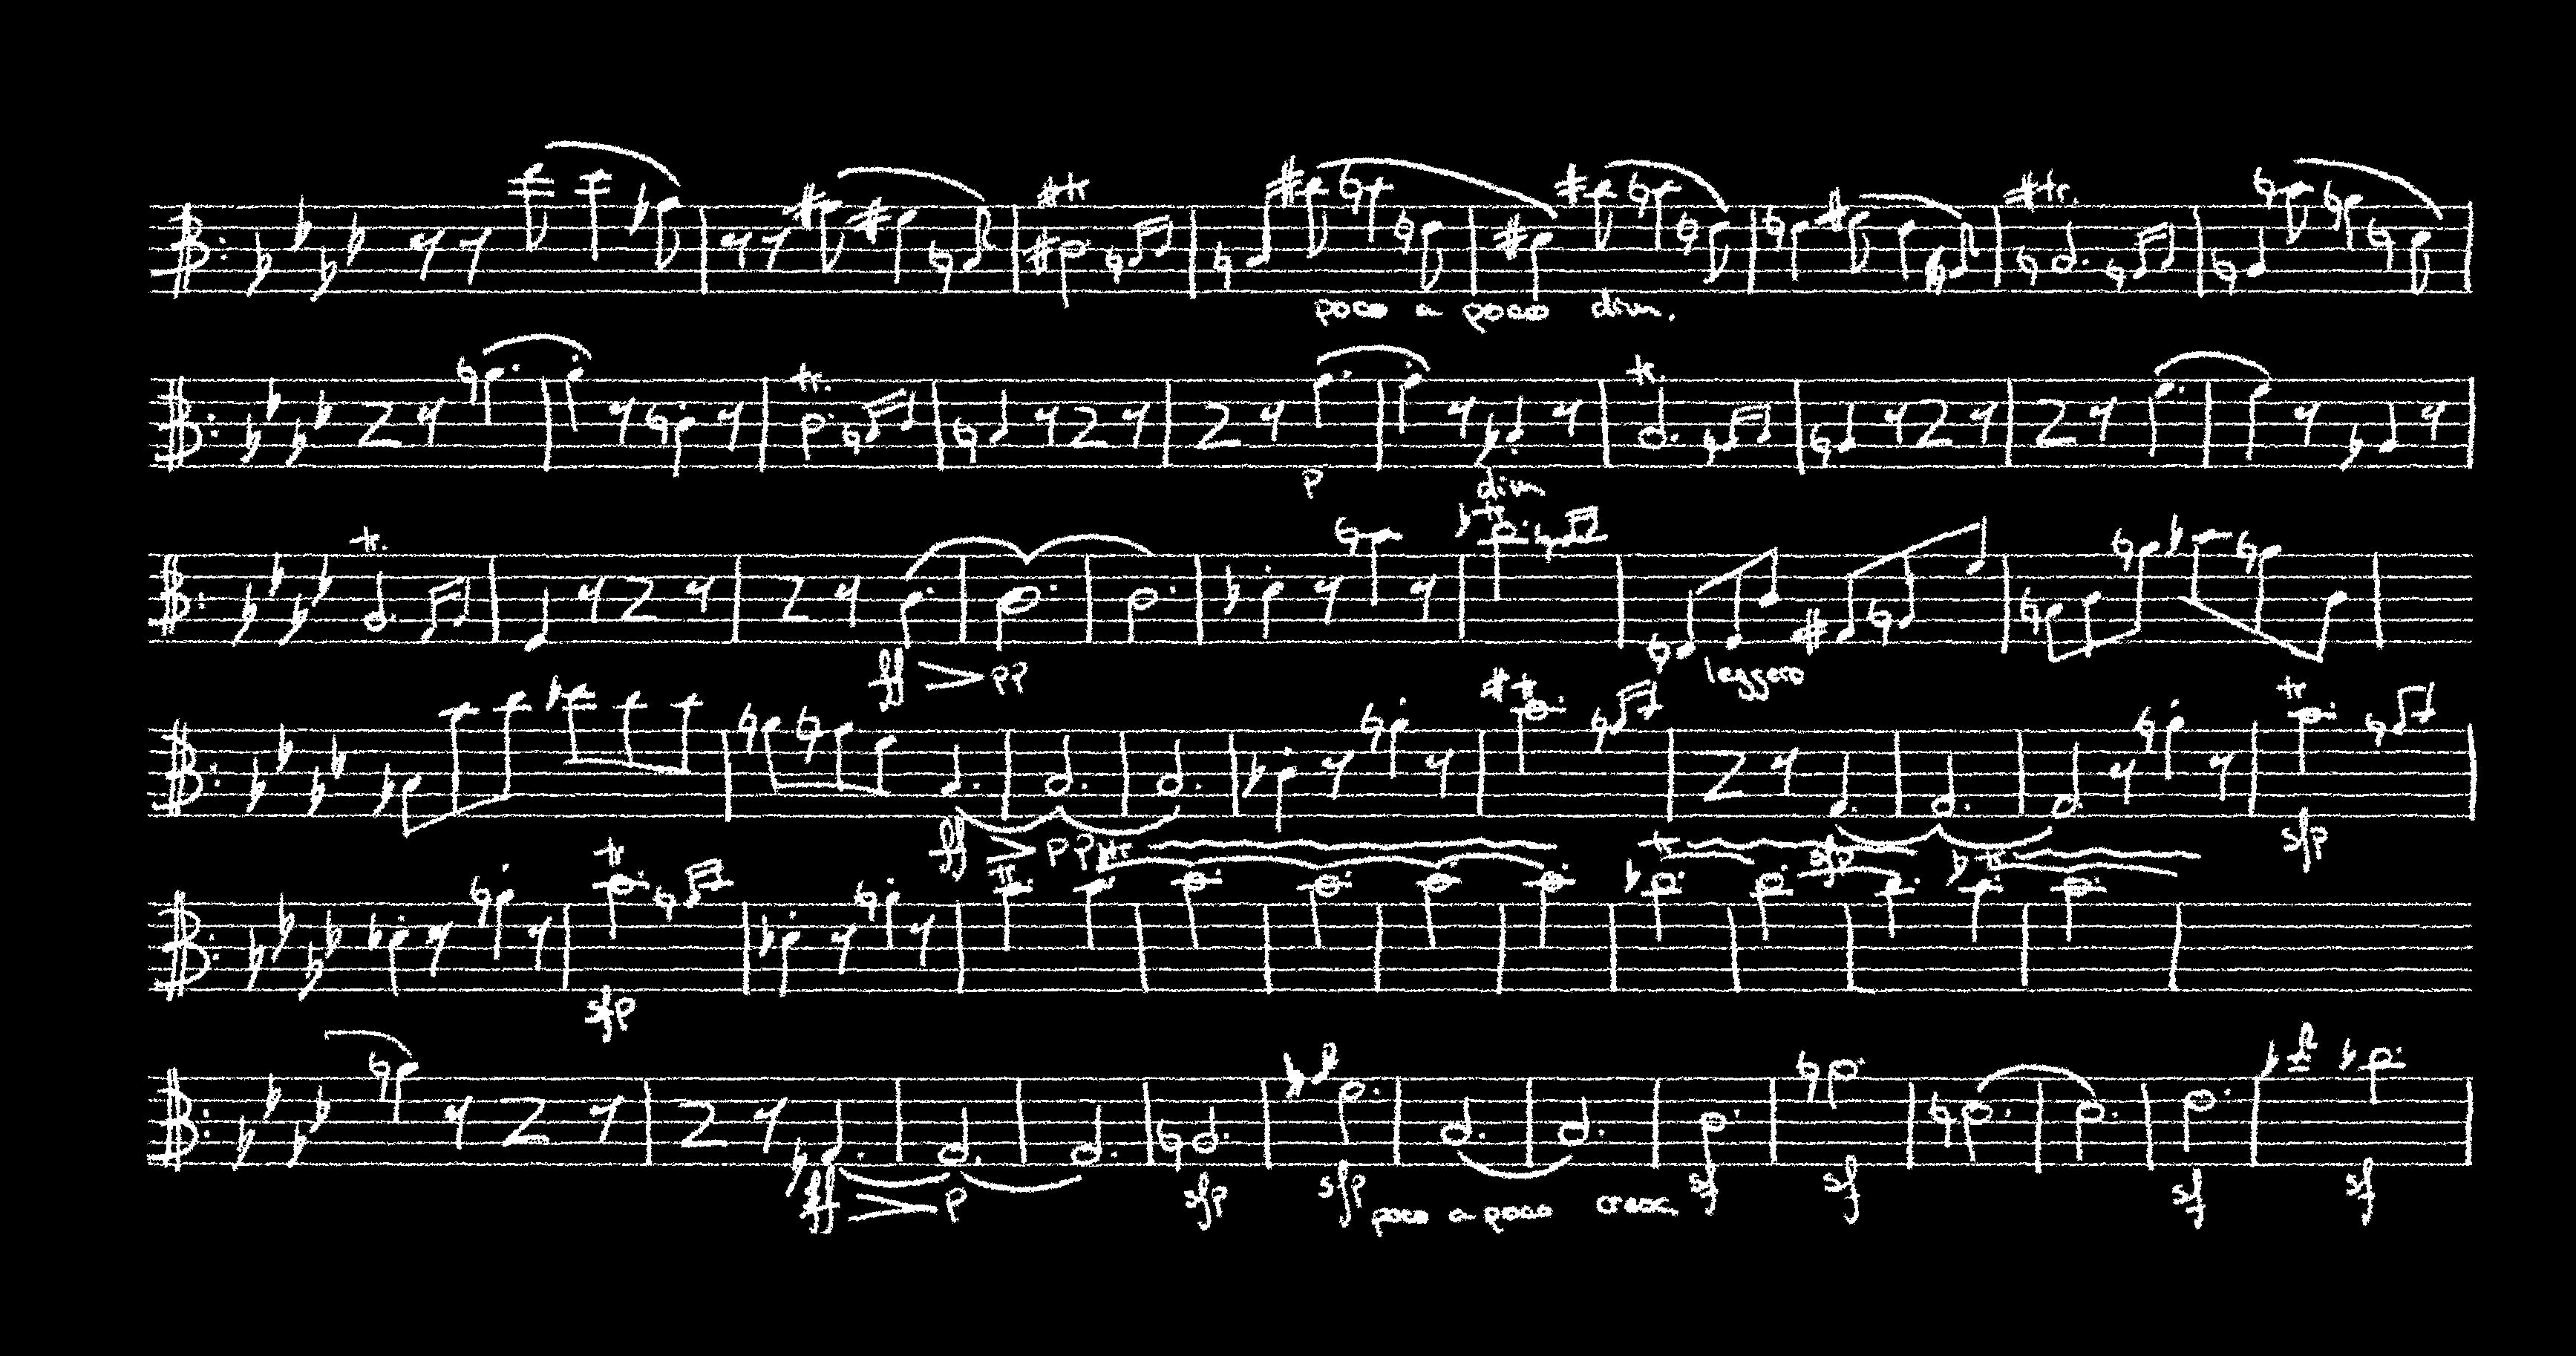 tr
tr.
poco a poco dim.
tr. tr.
p dim
tr. tr
ff pp leggero
tr tr
ff pp sfp sfp
tr tr tr tr
sfp
ff p sfp sfp poco a poco cresc. sf sf sf sf